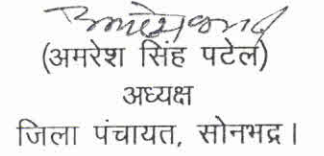 (अमरेश सिंह पटेल)
अध्यक्ष
जिला पंचायत, सोनभद्र।